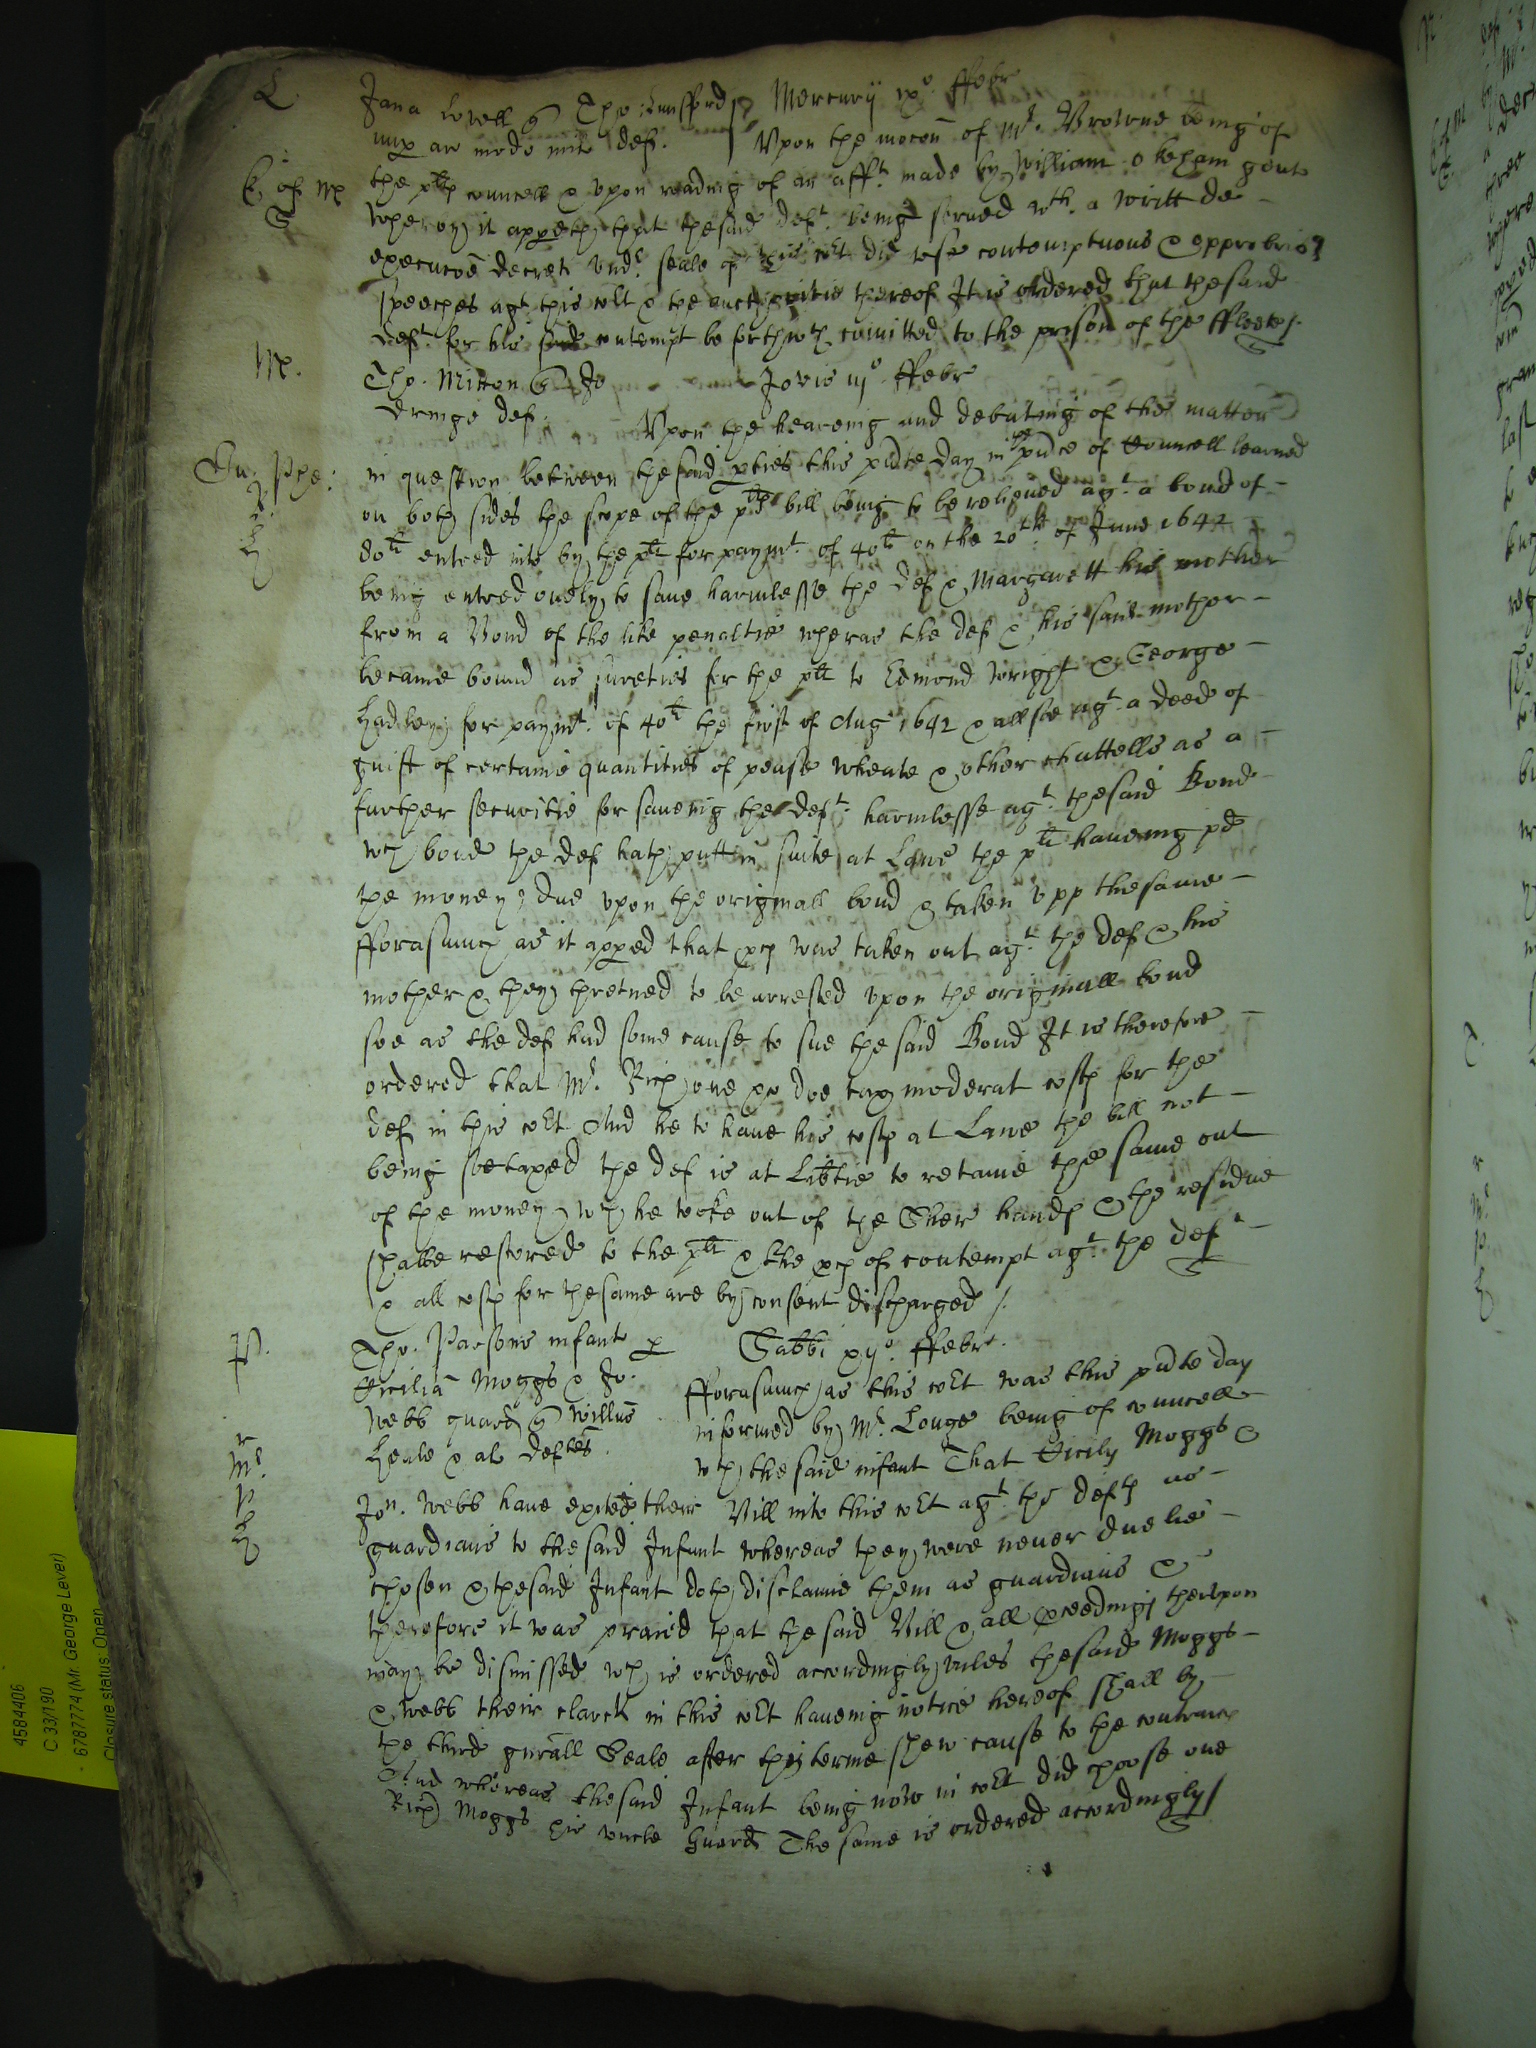 L
Jana Lovell q Tho: Lunsford Mercurij ixo ffebr
nup ar modo mil def. Vpon the mocon of Mr. Browne being of
the plts councell & vpon reading of an afft. made by William Okeham gent
wherby it appeth that thesaid deft. being serued wth. a writt de
execucoe decreti vndr. seale of this Cort did vse contemptuous & opprobrio9
speeches agt. this Cort & the aucthoritie thereof It is ordered that thesaid
deft. for his said contempt be forthwth comitted to the prison of the ffleete /.
M.
Tho. Mitton q Jo Jovis iijo ffebr
dringe def. Vpon the heareing and debating of the matter
in question between thesaid pties this pnte day in the pnce of Councell learned
on both sides the scope of the plts bill being to be relieued agt. a bond of
80li entred into by the plt for paymt. of 40li on the 20th of June 1642
being entred onely to saue harmlesse the def & Margarett his mother
from a Bond of the like penaltie wheras the def & his said mother
became bound as sureties for the plt to Edmond Wright & George
Hadley for paymt. of 40li the first of Aug 1642 & allsoe agt. a deed of
guift of certaine quantities of pease wheate & other chattells as a
further securitie for saueing the deft. harmlesse agt. thesaid Bond
wch bond the def hath putt in suite at Lawe the plt haueing pd
the money due vpon the originall bond & taken vpp thesame
fforasmuch as it apped that pcs was taken out agt. the def & his
mother & they thretned to be arrested vpon the originall bond
soe as the def had some cause to sue the said Bond It is therefore
ordered that Mr. Rich one &c doe tax moderat costs for the
def in this Cort And he to haue his costs at Lawe the bill not
being soe taxed the def is at Libtie to retaine the same out
of the money wch he tooke out of the Sher hands & the residue
shalbe restored to the plt & the pcs of contempt agt. the def
& all costs for thesame are by consent discharged /.
P.
Tho. Parsons infant p Sabbi xijo. ffebr.
Cicilia Moggs & Jo. fforasmuch as this Cort was this pnte day
Webb guard q Willus informed by Mr. Louge being of councell
Heale & al deftes. wth thesaid infant That Cicily Moggs &
Jon. Webb haue exited their Bill into this Cort agt. the defts as
guardians to the said Infant whereas they were neuer duelie
chosen & thesaid Infant doth disclaime them as guardians &
therefore it was praied that thesaid Bill & all pceedings thervpon
may be dismissed wch is ordered accordingly vnles thesaid Moggs
& Webb their clarck in this Cort haueing notice hereof shall by
the third gnrall Seale after this terme shew cause to the contrarie
And whereas thesaid Infant being now in Cort did choose one
Rich Moggs his vncle Guard The same is ordered accordingly /
4584406
C 33/190
6787774 (Mr. George Lever)
Closure status: Open